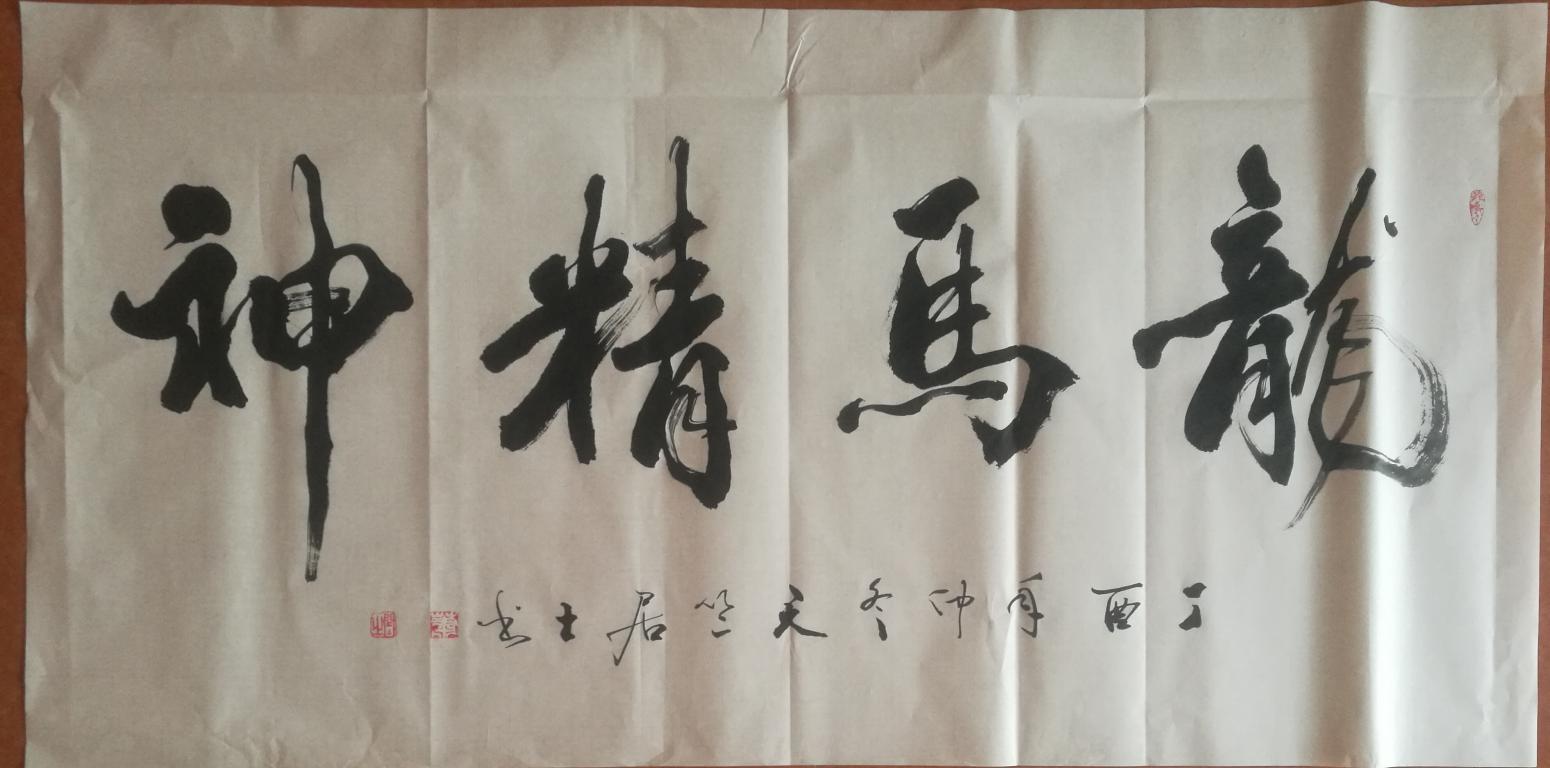 龍馬精神
丁酉年仲冬天竺居士书